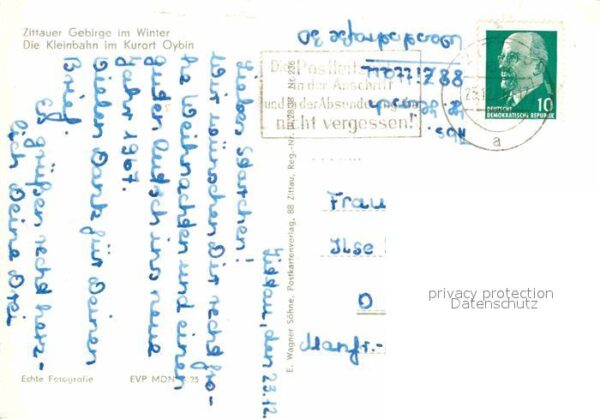 Zittauer Gebirge im Winter
Die Kleinbahn im Kurort Oybin
Zittau, den 23.12.
Liebes Stärchen!
Wir wünschen Dir recht fro-
he Weihnachten und einen
guten Rutsch ins neue
Jahr 1967.
Vielen Dank für Deinen
Brief.
Es grüßen recht herz-
lich Deine Drei
Echte Fotografie EVP MDN
E. Wagner Söhne, Postkartenverlag, 88 Zittau, Reg.-Nr.
Abs.
88 Zittau
30
Die Postleitzahl
in der Anschrift
und in der Absenderangabe
nicht vergessen!
a
10
DEUTSCHE
DEMOKRATISCHE REPUBLIK
Frau
Ilse
O
Manfr.-
privacy protection
Datenschutz